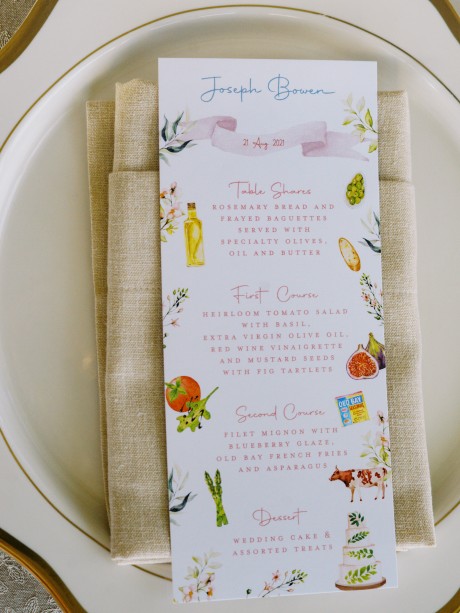 Joseph Bowen
21 Aug 2021
Table Shares
ROSEMARY BREAD AND
FRAYED BAGUETTES
SERVED WITH
SPECIALTY OLIVES,
OIL AND BUTTER
First Course
HEIRLOOM TOMATO SALAD
WITH BASIL,
EXTRA VIRGIN OLIVE OIL,
RED WINE VINAIGRETTE
AND MUSTARD SEEDS
WITH FIG TARTLETS
OLD BAY
Second Course
FILET MIGNON WITH
BLUEBERRY GLAZE,
OLD BAY FRENCH FRIES
AND ASPARAGUS
Dessert
WEDDING CAKE &
ASSORTED TREATS